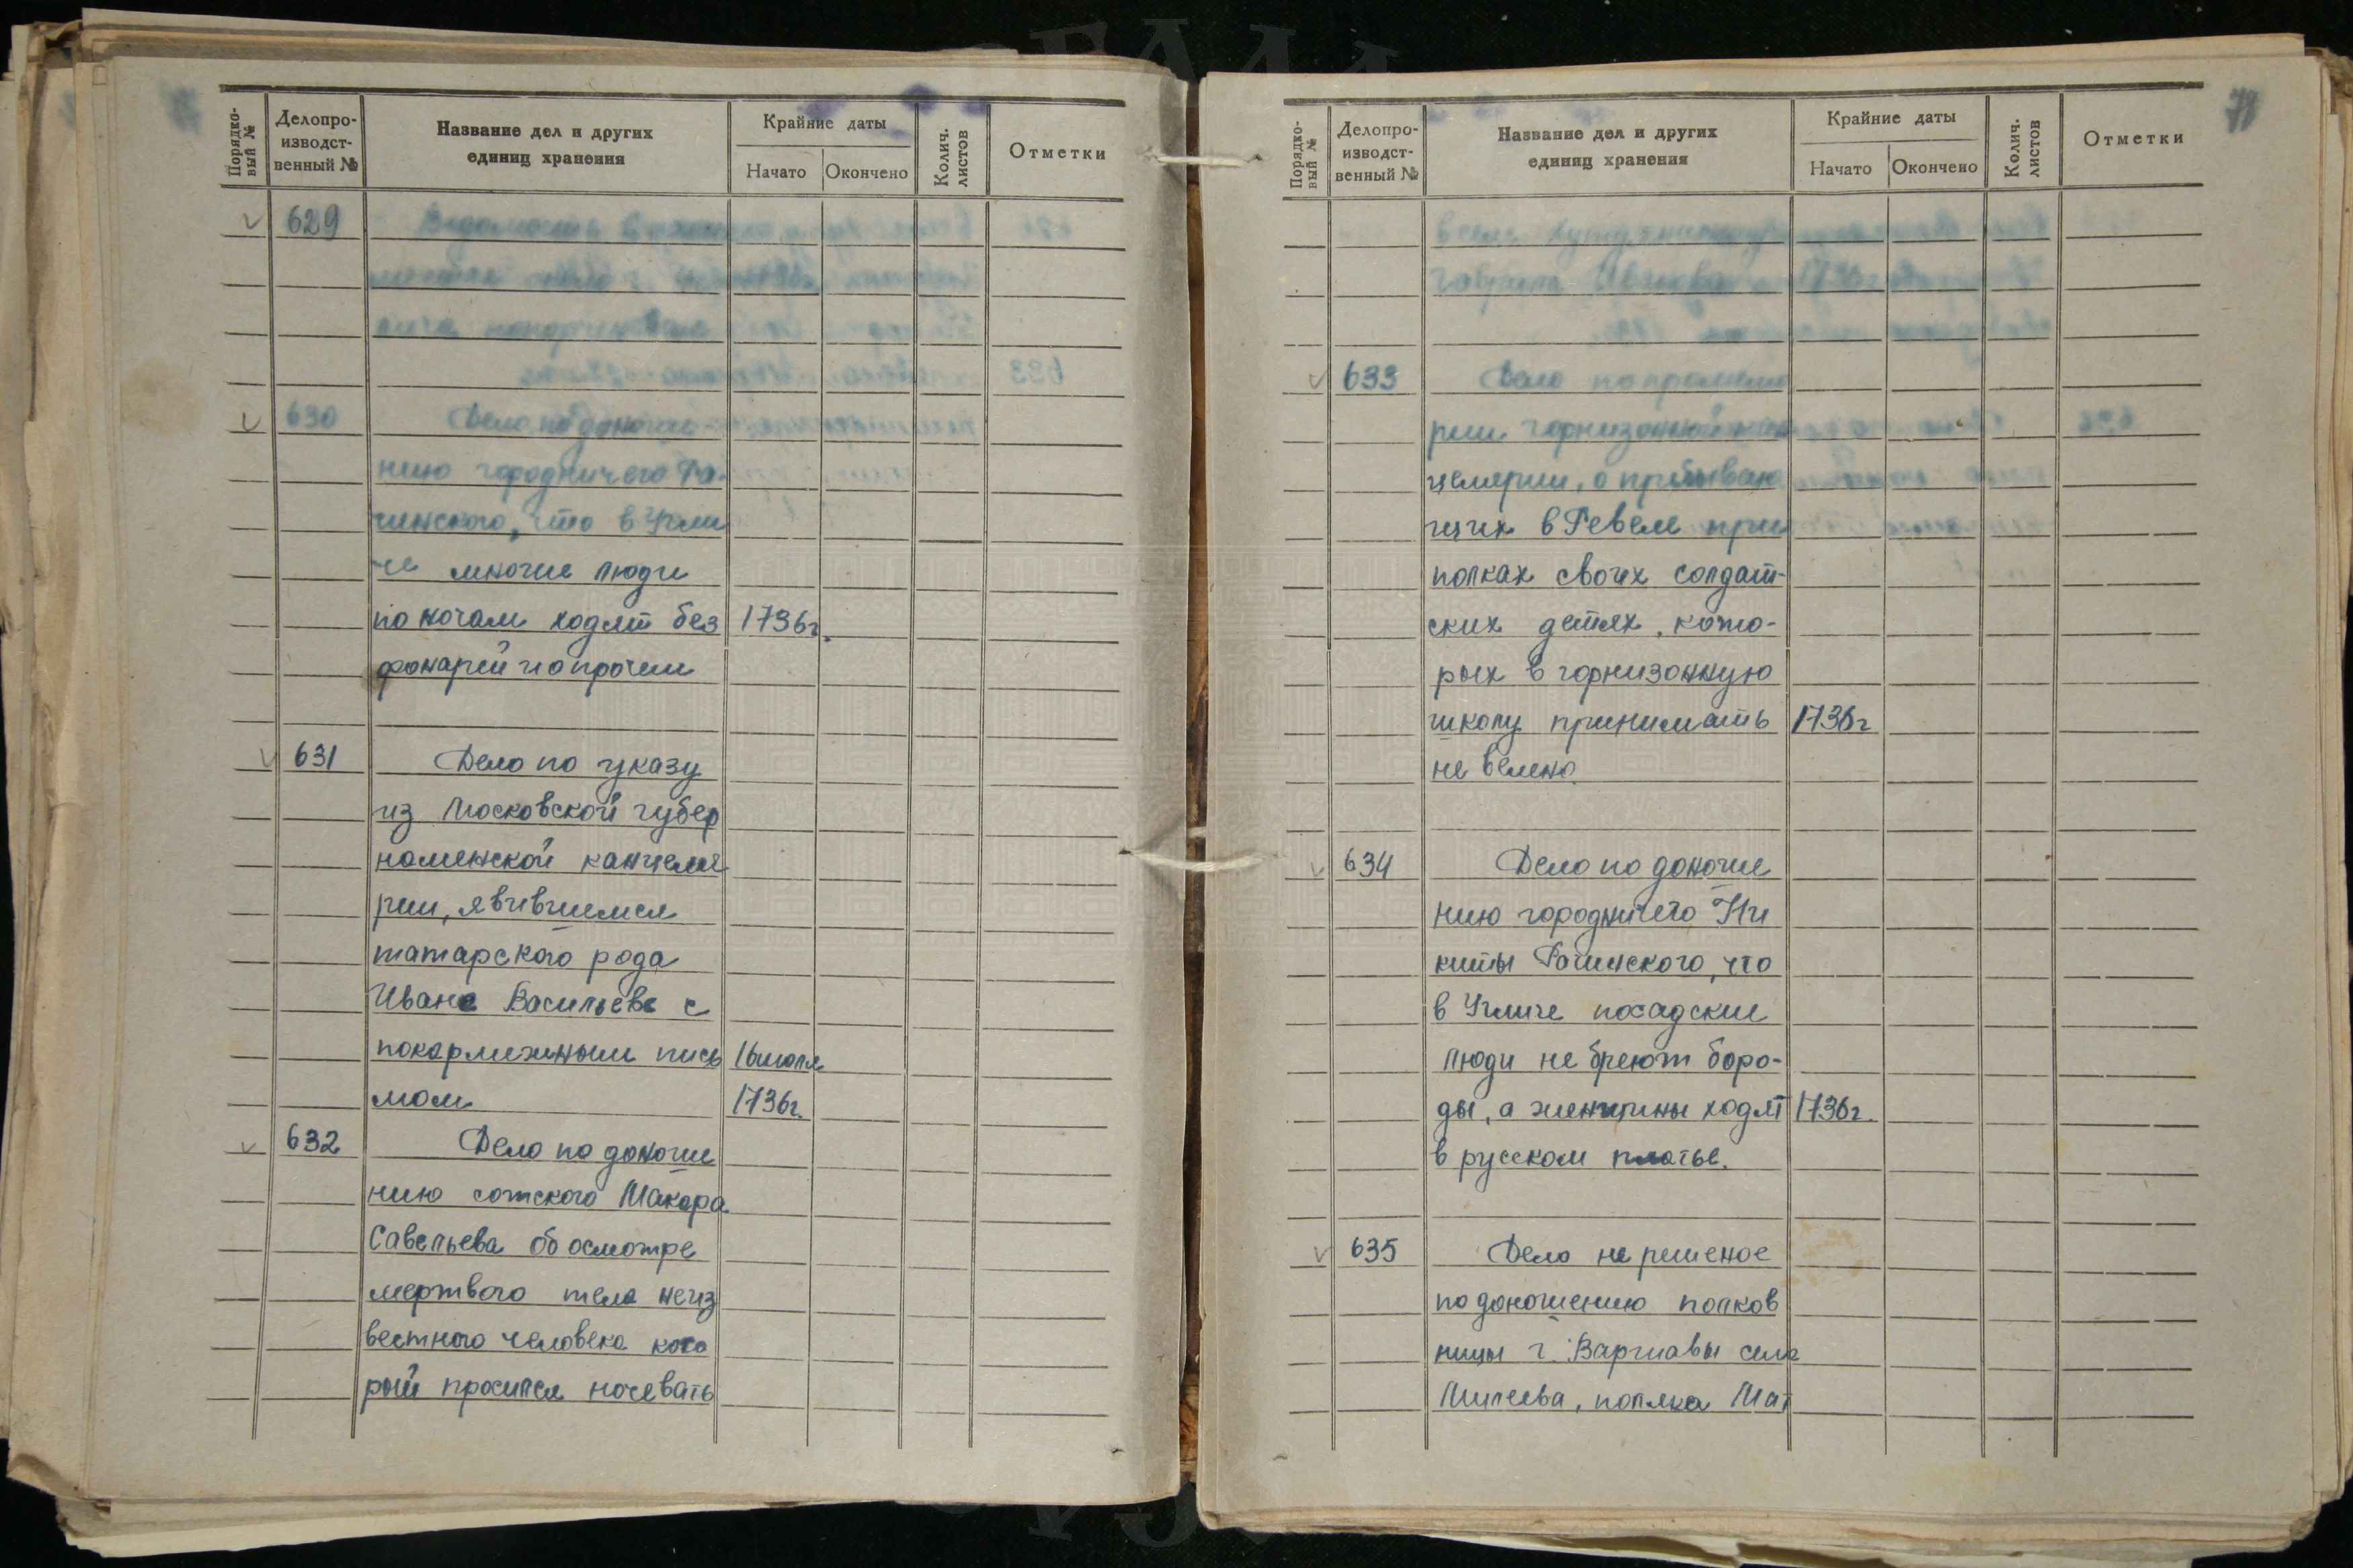 Порядко-
вый №
Делопро-
изводст-
венный №
Название дел и других
единиц хранения
Крайние даты
Начато
Окончено
Колич.
листов
Отметки
629
Ведомость
630
Дело по доноше
нию городничего Ра-
чинского, что в Угли
че многие люди
по ночам ходят без 1736г.
фонарей и о прочем
631
Дело по указу
из Московской губер
наменской канцеля
рии, явившемся
татарского рода
Иване Васильеве с
покармежным пись 16 июля
мом 1736г.
632
Дело по доноше
нию сотского Макара
Савельева об осмотре
мертвого тела неиз
вестного человека кото
рый просился ночевать
79
Порядко-
вый №
Делопро-
изводст-
венный №
Название дел и других
единиц хранения
Крайние даты
Начато
Окончено
Колич.
листов
Отметки
1736г
633
Дело по промемо
рии горнизонной кан
целярии, о пребываю
щих в Ревеле при
полках своих солдат-
ских детях, кото-
рых в горнизонную
школу принимать 1736г
не велено.
634
Дело по доноше
нию городничего Ни
киты Рачинского, что
в Угличе посадские
люди не бреют боро-
ды, а женщины ходят 1736г.
в русском платье.
635
Дело не решеное
по доношению полков
ницы г. Варшавы села
Милеева, поляка Мат